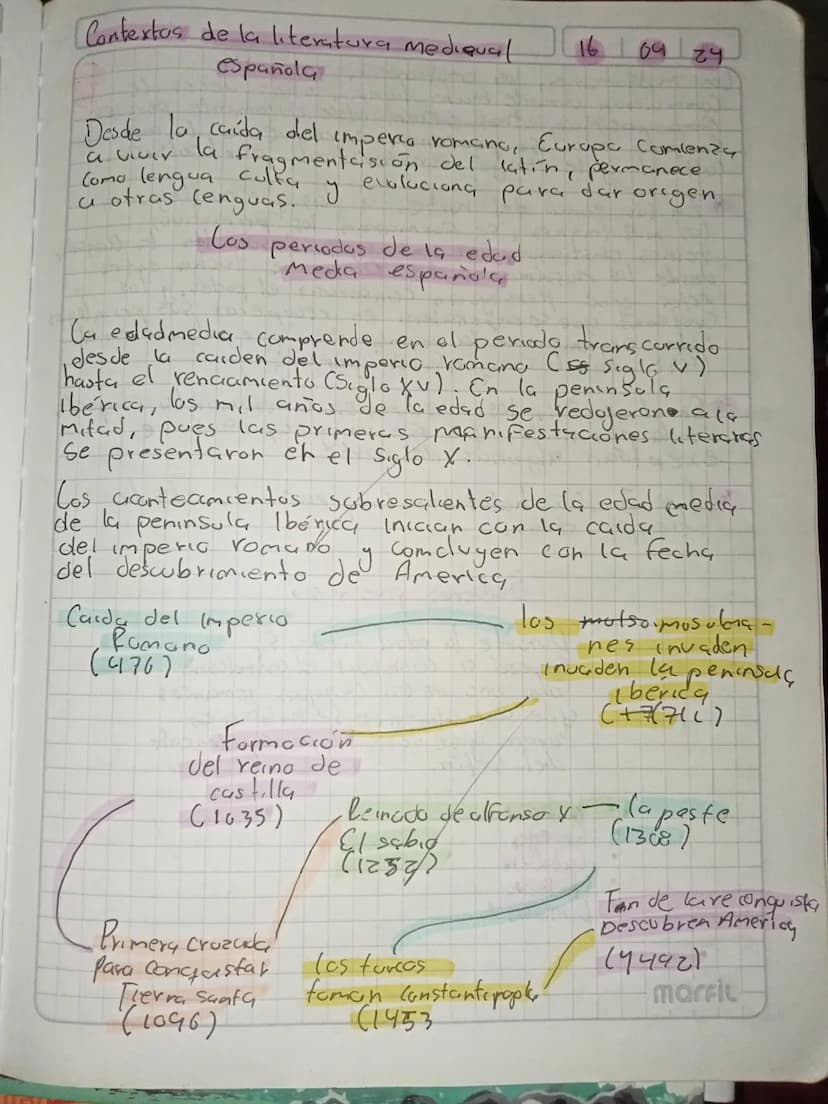 Contextos de la literatura medieval
española
16 | 04 | 24
Desde la caída del imperio romano, Europa comienza
a vivir la fragmentcisión del latín, permanece
como lengua culta y evoluciona para dar origen
a otras lenguas.
Los periodos de la edad
media española
La edadmedia comprende en el periodo transcurrido
desde la caiden del imperio romano (siglo V)
hasta el renaciamiento (Siglo XV). En la peninsula
Ibérica, los mil años de la edad se redujerone a la
mitad, pues las primeras manifestaciones literaras
se presentaron en el siglo X.
Los aconteamientos sobresalientes de la edad media
de la peninsula Ibérica inician con la caida
del imperio romano y comcluyen con la fecha
del descubrimiento de America
Caida del imperio
Romano
(476)
los musulma-
nes invaden
invaden la peninsula
iberica
(711)
Formación
del reino de
castilla
(1035)
Reinado de alfonso X
El sabio
(1252)
la peste
(1308)
Primera Cruzada
Para conquistar
Tierra santa
(1096)
los turcos
toman constantinopla
(1453
Fin de la reconquista
Descubren America
(1492)
marfil